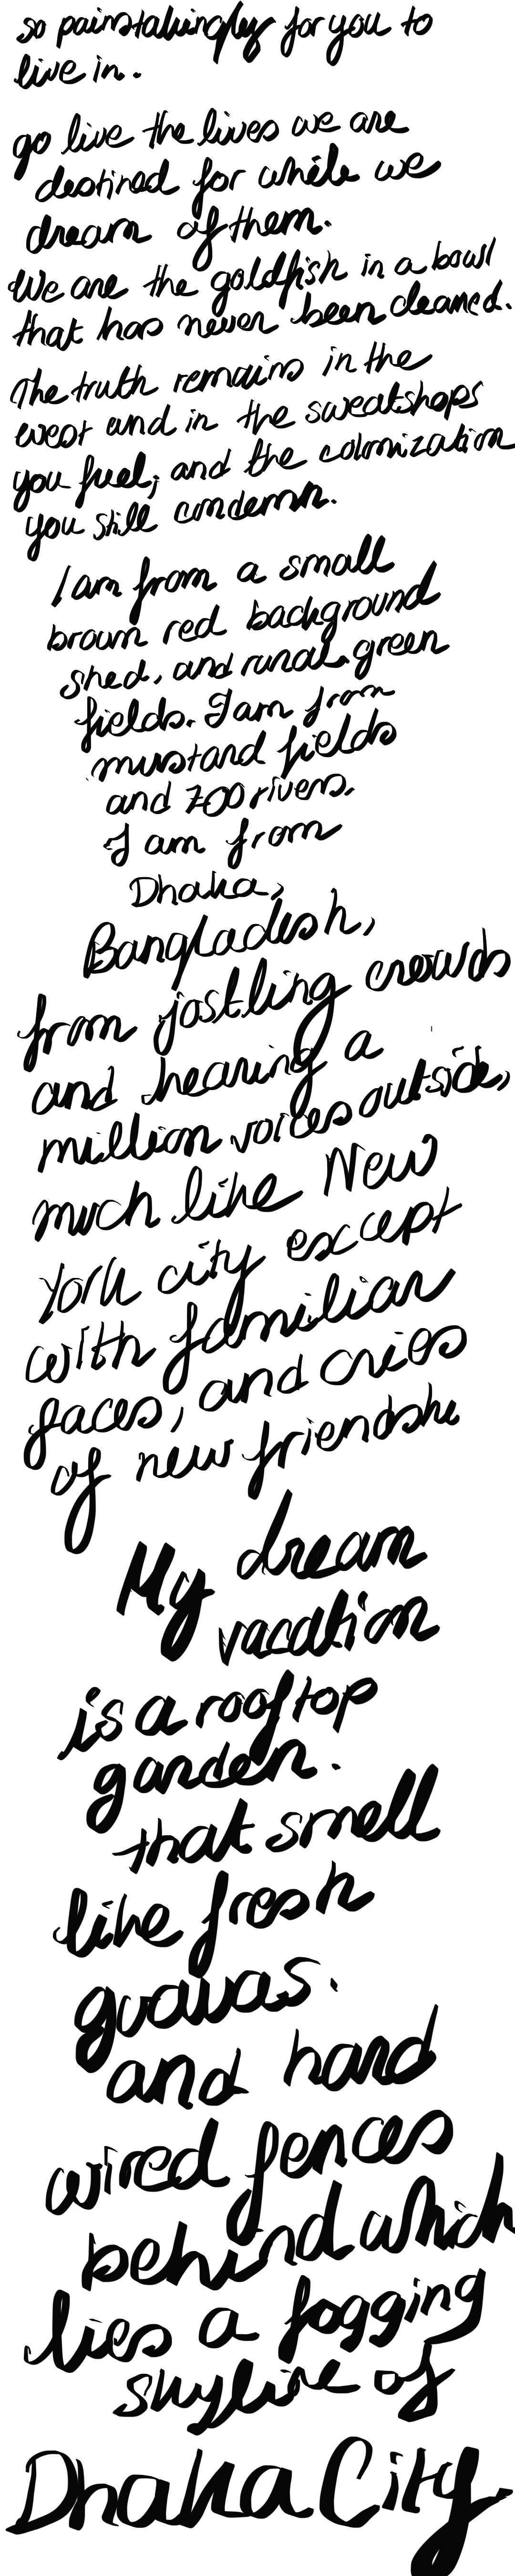 so painstakingly for you to
live in.
go live the lives we are
destined for while we
dream of them.
We are the goldfish in a bowl
that has never been cleaned.
The truth remains in the
west and in the sweatshops
you fuel, and the colonization
you still condemn.
I am from a small
brown red background
shed, and rural green
fields. I am from
mustard fields
and 700 rivers.
I am from
Dhaka,
Bangladesh,
from jostling crowds
and hearing a
million voices outside,
much like New
York city except
with familiar
faces, and cries
of new friendshi
My dream
vacation
is a rooftop
garden.
that smell
like fresh
guavas.
and hard
wired fences
behind which
lies a fogging
skyline of
Dhaka City